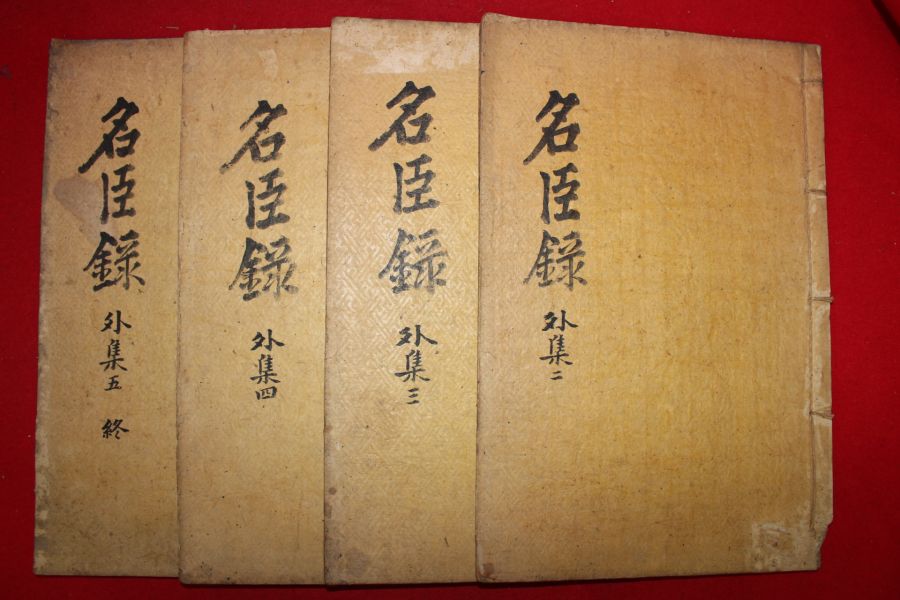 名臣錄 外集二
名臣錄 外集三
名臣錄 外集四
名臣錄 外集五 終